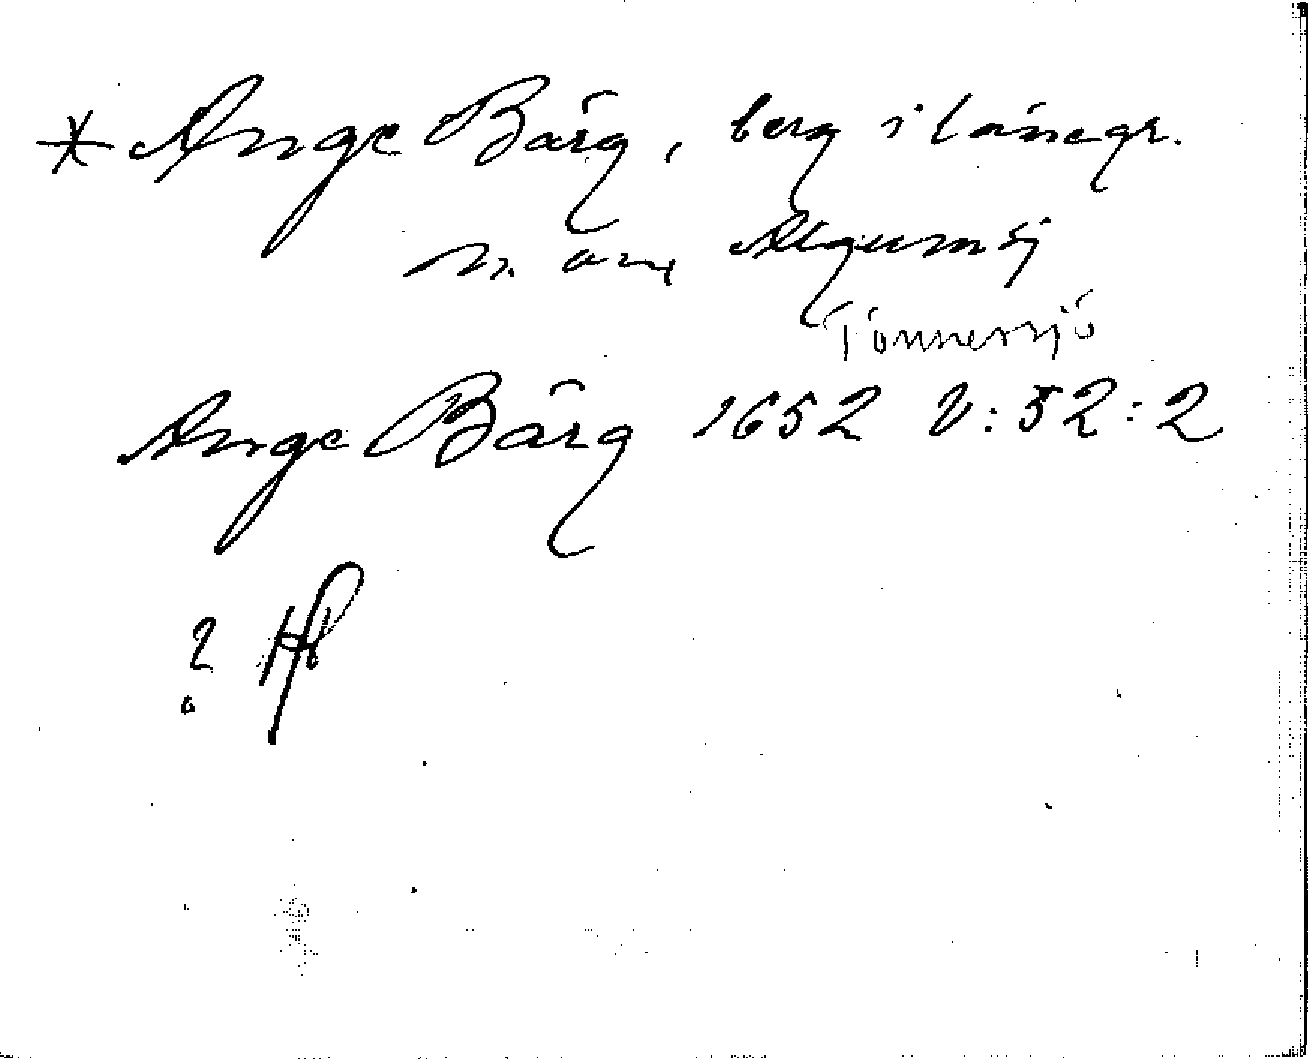 * Ange Bärg, berg i länegr.
n. om Älgums j
Tönnersjö
Ange Bärg 1652 V:52:2
?